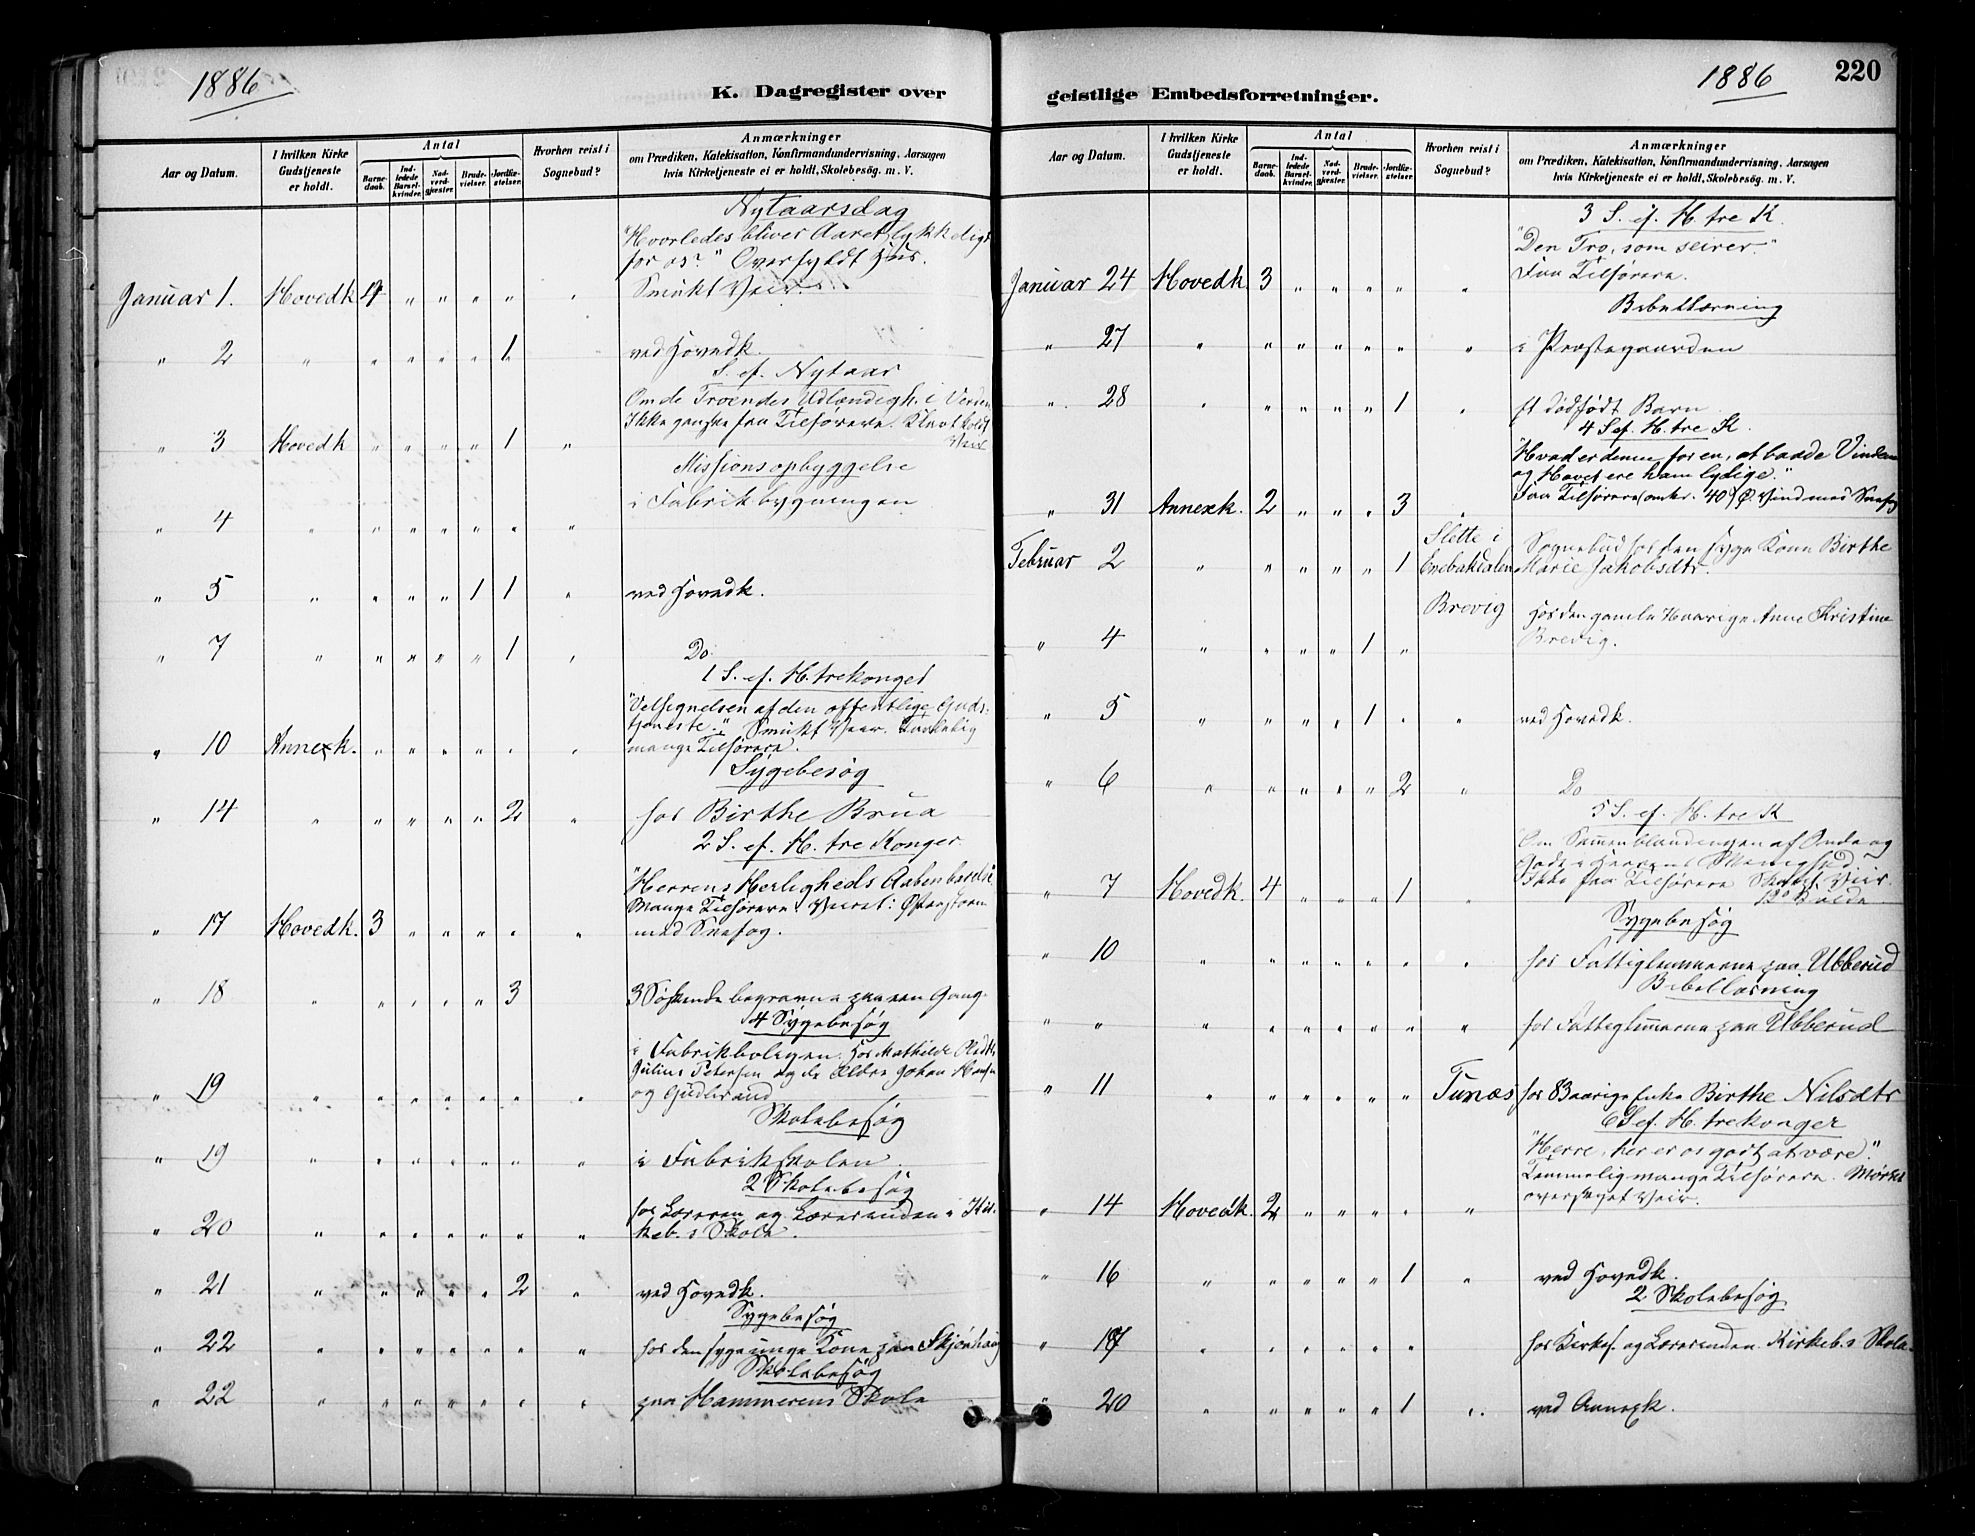 1886
K. Dagregister over
Aar og Datum.
I hvilken Kirke Gudstjeneste er holdt.
Antal
Barnedaab.
Indledede Barselkvinder.
Nadverdgjæster.
Brudevielser.
Jordfæstelser.
Hvorhen reist i Sognebud?
Anmærkninger
om Prædiken, Katekisation, Konfirmandundervisning, Aarsagen
hvis Kirketjeneste ei er holdt, Skolebesøg. m. V.
Nytaarsdag
"Hvorledes bliver Aaret lykkeligt
for os?" Overfyldt Hus.
Januar 1. Hovedk. 4 " " " " " Smukt Veir.
" 2 " " " " " 1 " ved Hovedk.
S. ef. Nytaar
Om de Troendes Udlændigh. i Verden
Ikke ganske faa Tilhørere. Klart koldt
Veir
" 3 Hovedk " " " " 1 "
Missionsopbyggelse
i Fabrikbygningen
" 4 " " " " " " "
" 5 " " " " 1 1 " ved Hovedk.
" 7 " " " " " 1 " Do
1 S. ef. H. trekonger
"Velsignelsen af den offentlige Guds-
tjeneste." Smukt Veir.
" 10 Annexk. " " " " " " mange Tilhørere.
Sygebesøg
" 14 " " " " " 2 " hos Birthe Brua
2 S. ef. H. tre Konger
"Herrens Herligheds Aabenbarelse"
Mange Tilhørere. Veiret: Østenstorm
" 17 Hovedk. 3 " " " " " med Snefog.
" 18 " " " " " 3 " 3 Søskende begravne paa en Gang.
4 Sygebesøg
i Fabrikboligen. Hos Mathilde
Julius Petersen og de Ældre Johan Hansen
" 19 " " " " " " " og Gudbrand
Skolebesøg
" 19 " " " " " " " i Fabrikskolen.
2 Skolebesøg
hos Læreren og Lærerinden i Kir-
" 20 " " " " " " " keb.s Skole.
" 21 " " " " " 2 " ved Hovedk.
Sygebesøg
" 22 " " " " " " " hos den syge unge Kone paa Skjønhaug
Skolebesøg
" 22 " " " " " " " paa Hammerens Skole
geistlige Embedsforretninger.
1886
220
Aar og Datum.
I hvilken Kirke Gudstjeneste er holdt.
Antal
Barnedaab.
Indledede Barselkvinder.
Nadverdgjæster.
Brudevielser.
Jordfæstelser.
Hvorhen reist i Sognebud?
Anmærkninger
om Prædiken, Katekisation, Konfirmandundervisning, Aarsagen
hvis Kirketjeneste ei er holdt, Skolebesøg. m. V.
3 S. ef. H. tre K.
"Den Tro, som seirer."
Januar 24 Hovedk. 3 " " " " " Faa Tilhørere.
Bibellæsning
" 27 " " " " " " " i Præstegaarden
" 28 " " " " " 1 " et dødfødt Barn
4 S ef. H. tre K.
"Hvad er denne for en, at baade Vinden
og Havet ere ham lydige."
" 31 Annexk. 2 " " " 3 " Faa Tilhørere (omkr. 40) Ø. Vind med Snefog
Februar 2 " " " " " 1 Slette i Enebakdalen Sognebud hos den syge Kone Birthe
Marie Jakobsdtr.
" 4 " " " " 1 " Brevig Hos den gamle Anne Kristine
Brevig.
" 5 " " " " 1 " " ved Hovedk.
" 6 " " " " " 2 " Do
5 S. ef. H. tre K
Om Sammenblandingen af Onde og
Gode i Herrens Menighed.
" 7 Hovedk. 4 " " " 1 " Ikke faa Tilhørere Skarpt Veir.
Sygebesøg
" 10 " " " " " " " hos Fattiglemmerne paa Ubberud
Bibellæsning
" " " " " " " " " hos Fattiglemmerne paa Ubberud
" 11 " " " " " " Tunæs hos 83 aarige Enke Birthe Nilsdtr
6 S ef. H. trekonger
"Herre, her er os godt at være."
Temmelig mange Tilhørere. Mørkt
" 14 Hovedk. 2 " " " " " overskyet Veir.
" 16 " " " " " 1 " ved Hovedk.
2 Skolebesøg
" 17 " " " " " " hos Kirkes. og Lærerinden Kirkeb.s Skole.
" 20 " " " " " 1 " ved Annexk.